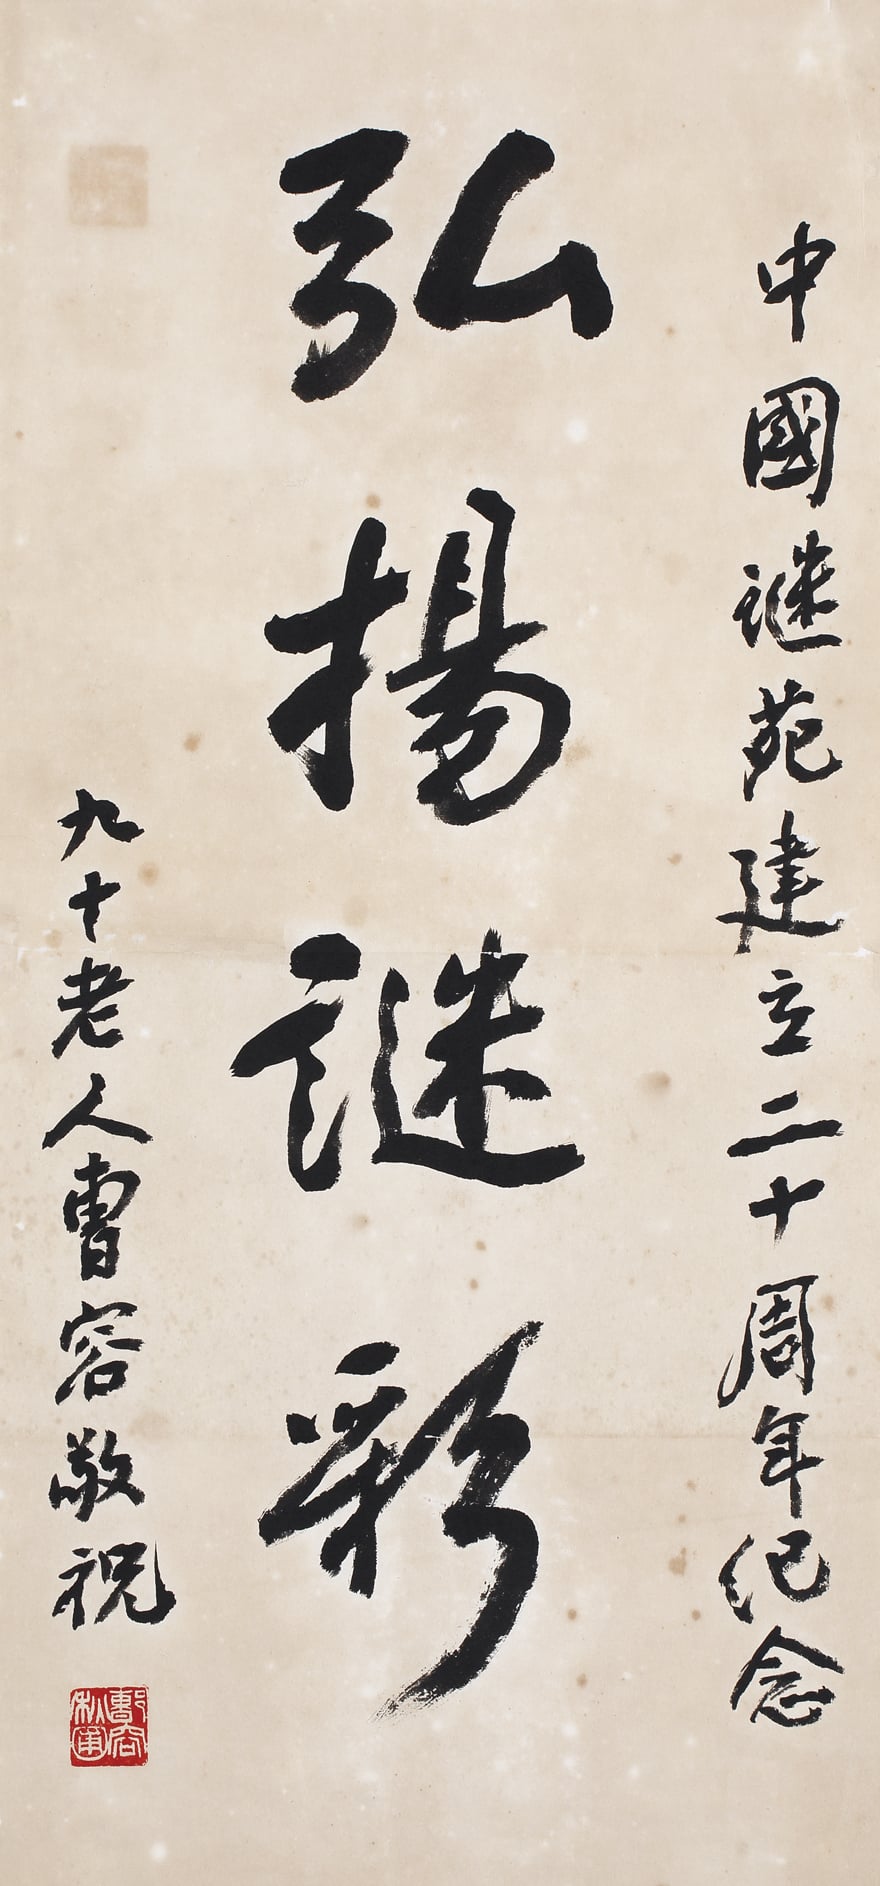 中國謎苑建立二十周年纪念
弘揚謎彩
九十老人曹容敬祝
曹容秋圃